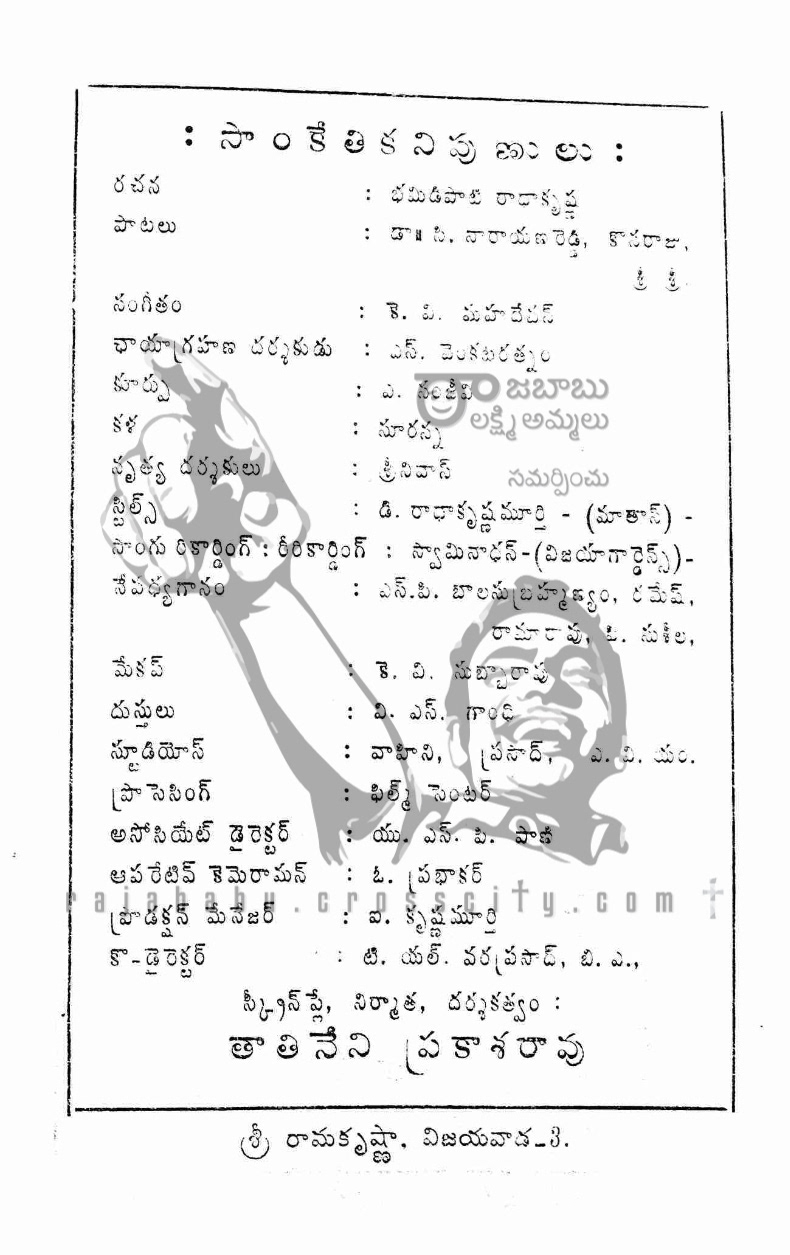 : సాంకేతికనిపుణులు :
రచన : భమిడిపాటి రాధాకృష్ణ
పాటలు : డా॥ సి. నారాయణరెడ్డి, కొసరాజు,
శ్రీ శ్రీ.
సంగీతం : కె. వి. మహదేవన్
ఛాయాగ్రహణ దర్శకుడు : ఎస్. వెంకటరత్నం
కూర్పు : ఎ. సంజీవి
రాజబాబు
కళ : సూరన్న
లక్ష్మి అమ్మలు
నృత్య దర్శకులు : శ్రీనివాస్
సమర్పించు
స్టిల్స్ : డి. రాధాకృష్ణమూర్తి - (మాతాస్) -
సాంగు రికార్డింగ్ : రీరికార్డింగ్ : స్వామినాధన్-(విజయాగార్డెన్స్)-
నేపధ్యగానం : ఎస్.పి. బాలసుబ్రహ్మణ్యం, రమేష్,
రామారావు, పి. సుశీల,
మేకప్ : కె. వి. సుబ్బారావు
దుస్తులు : వి. ఎస్. గాంధి
స్టూడియోస్ : వాహిని, ప్రసాద్, ఎ. వి. యం.
ప్రాసెసింగ్ : ఫిల్మ్ సెంటర్
అసోసియేట్ డైరెక్టర్ : యు. ఎస్. పి. పాణి
ఆపరేటివ్ కెమెరామన్ : ఓ. ప్రభాకర్
rajababu.crosscity.com
ప్రొడక్షన్ మేనేజర్ : ఐ. కృష్ణమూర్తి
కొ-డైరెక్టర్ : టి. యల్. వరప్రసాద్, బి. ఎ.,
స్క్రీన్‌ప్లే, నిర్మాత, దర్శకత్వం :
తాతినేని ప్రకాశరావు
శ్రీ రామకృష్ణా, విజయవాడ-3.